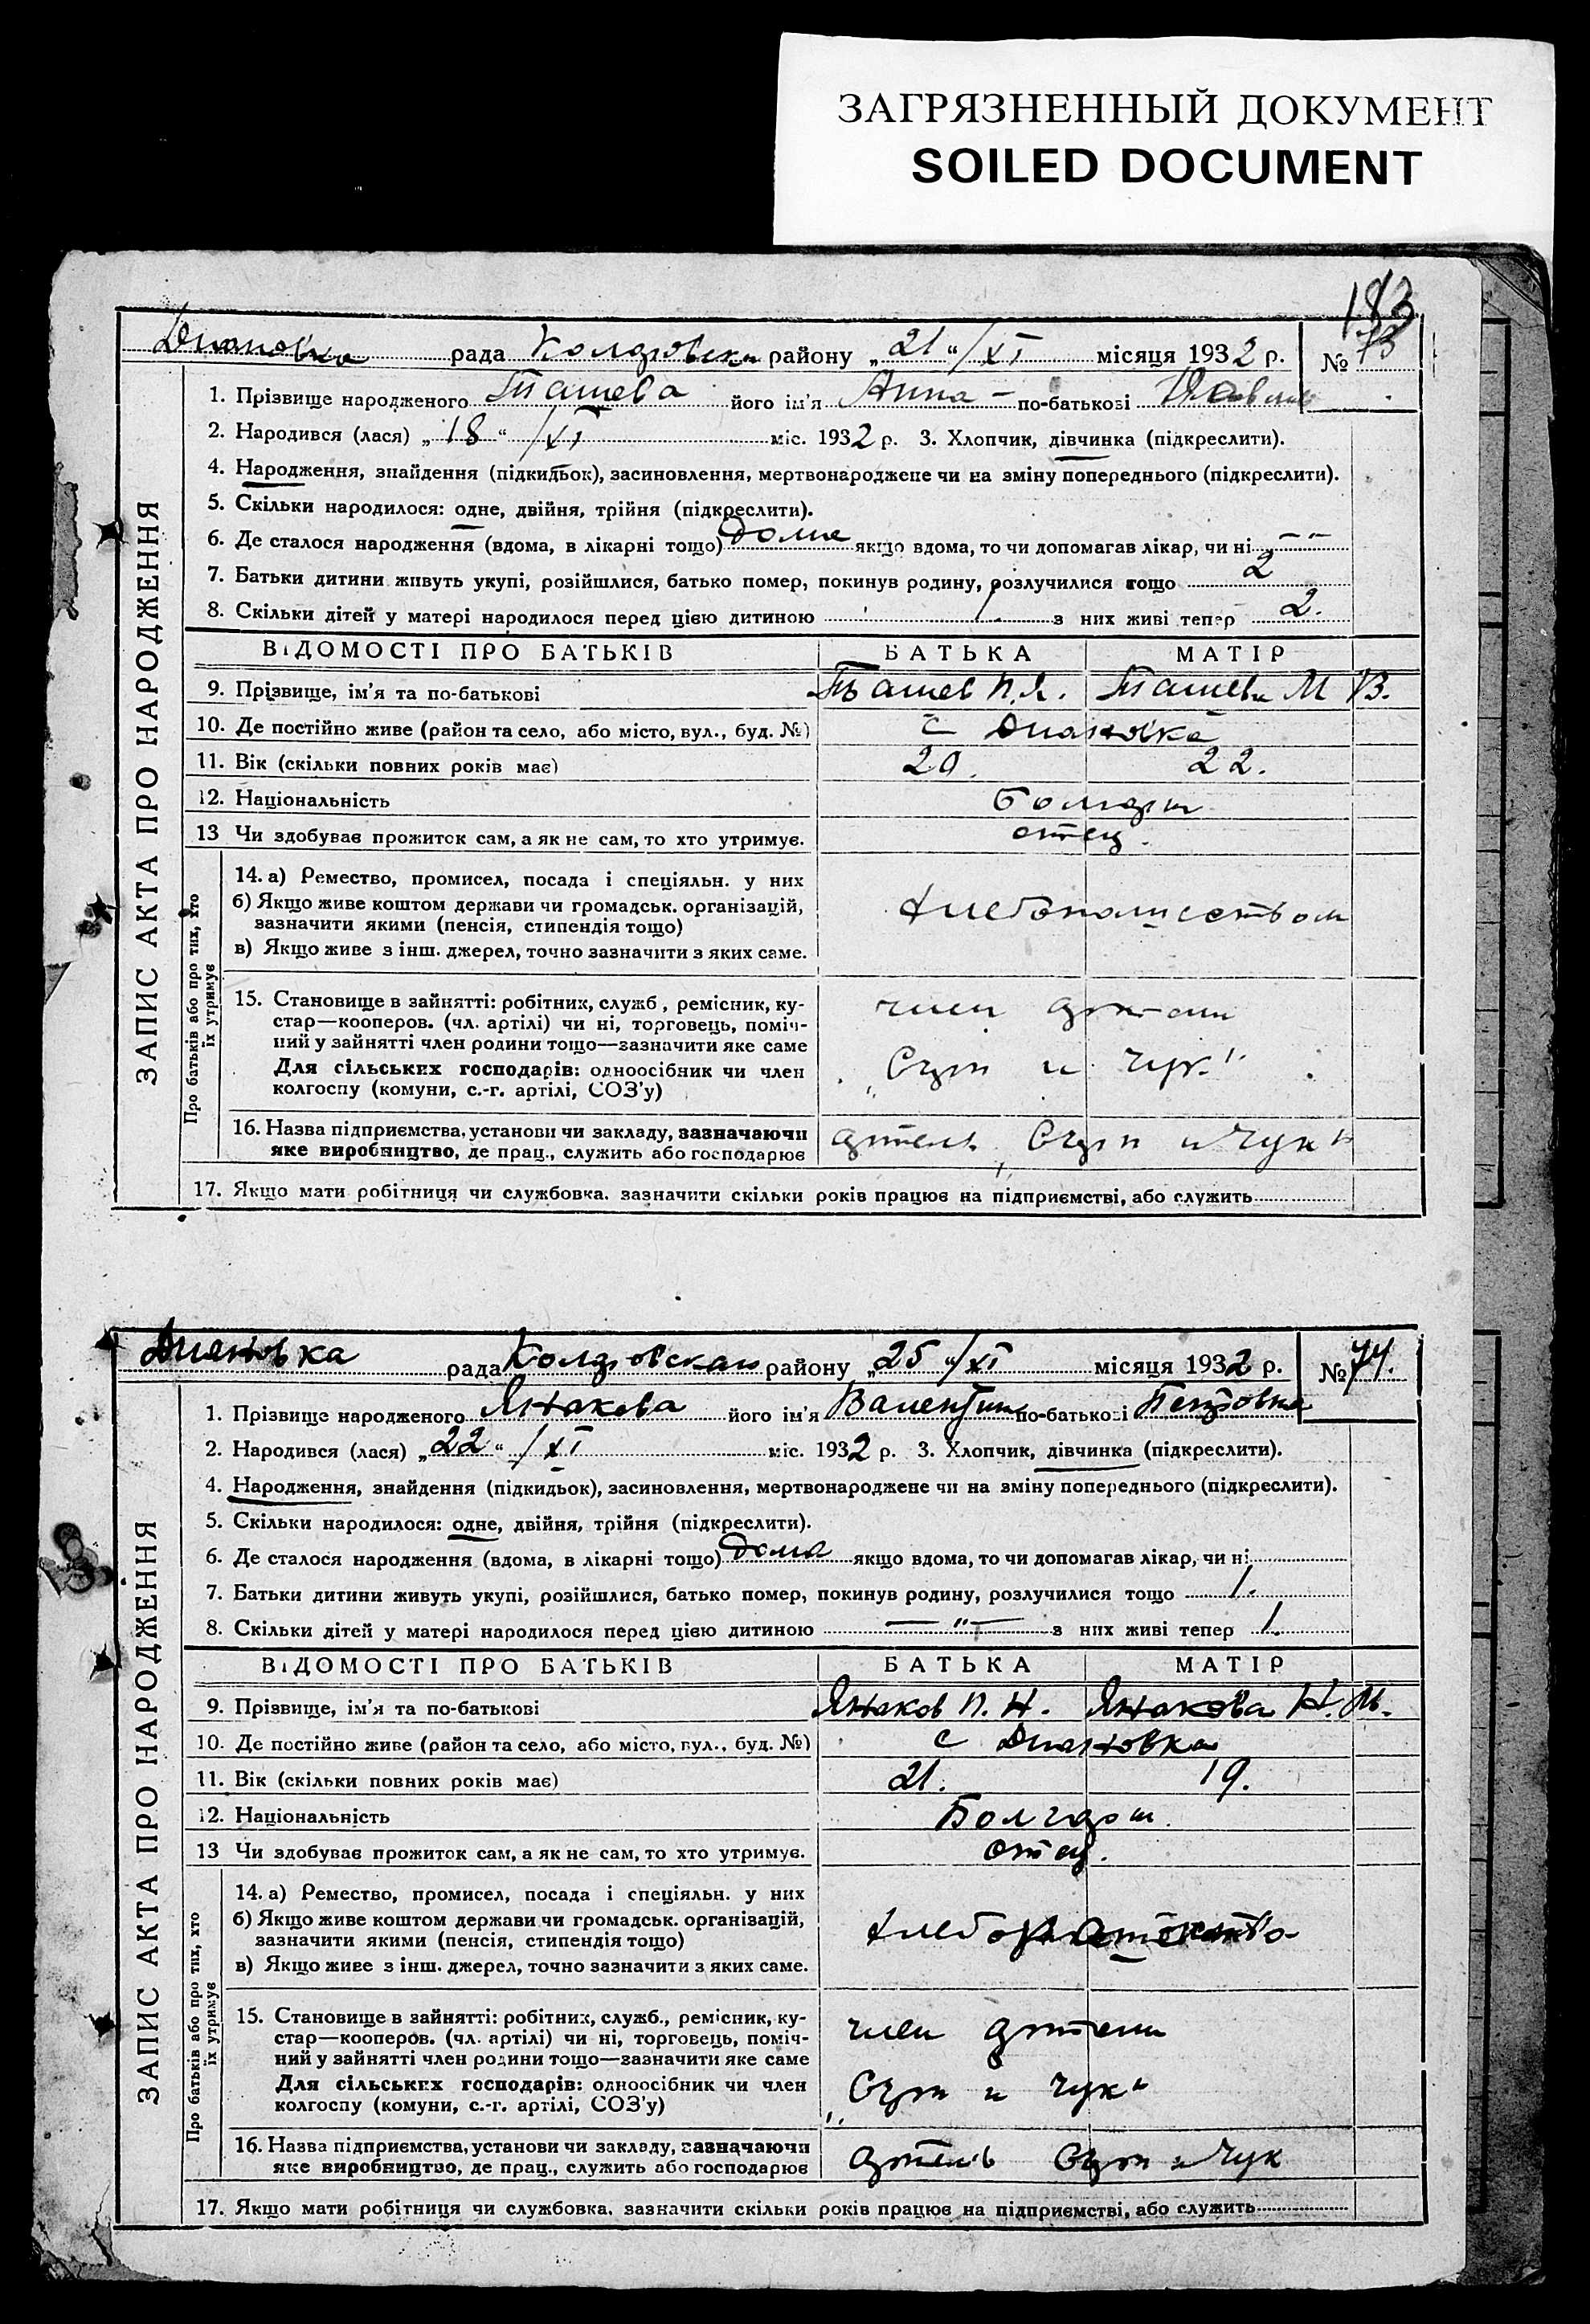 ЗАГРЯЗНЕННЫЙ ДОКУМЕНТ
SOILED DOCUMENT
183
Диановка рада районy „21“/XI місяця 1932 р. № 73
1. Прізвище народженого Ташева його ім'я Анна по-батькові
2. Народився (лася) „18“ /XI міс. 1932 р. 3. Хлопчик, дівчинка (підкреслити).
4. Народження, знайдення (підкидьок), засиновлення, мертвонароджене чи на зміну попереднього (підкреслити).
5. Скільки народилося: одне, двійня, трійня (підкреслити).
6. Де сталося народження (вдома, в лікарні тощо) дома якщо вдома, то чи допомагав лікар, чи ні
7. Батьки дитини живуть укупі, розійшлися, батько помер, покинув родину, розлучилися тощо 2
8. Скільки дітей у матері народилося перед цією дитиною 1. з них живі тепер 2.
ВІДОМОСТІ ПРО БАТЬКІВ БАТЬКА МАТІР
9. Прізвище, ім'я та по-батькові Ташев П. Я. Ташева М В.
10. Де постійно живе (район та село, або місто, вул., буд. №) с Диановка
11. Вік (скільки повних років має) 20. 22.
12. Національність Болгары
13 Чи здобував прожиток сам, а як не сам, то хто утримує. отец.
14. а) Ремество, промисел, посада і спеціяльн. у них
б) Якщо живе коштом держави чи громадськ. організацій,
зазначити якими (пенсія, стипендія тощо)
в) Якщо живе з інш. джерел, точно зазначити з яких саме.
15. Становище в зайнятті: робітник, служб, ремісник, ку-
стар—кооперов. (чл. артілі) чи ні, торговець, поміч-
ний у зайнятті член родини тощо—зазначити яке саме
член артели
Для сільських господарів: одноосібник чи член
колгоспу (комуни, с.-г. артілі, СОЗ'у)
„Сърп и Чук“
16. Назва підприємства, установи чи закладу, зазначаючи
яке виробництво, де прац., служить або господарює
артель „Сърп и Чук“
17. Якщо мати робітниця чи службовка, зазначити скільки років працює на підприємстві, або служить
ЗАПИС АКТА ПРО НАРОДЖЕННЯ
Про батьків або про тих, хто
їх утримує
Диановка рада районy „25“/XI місяця 1932 р. № 74.
1. Прізвище народженого Янакова його ім'я Валентина по-батькові Петровна
2. Народився (лася) „22“ /XI міс. 1932 р. 3. Хлопчик, дівчинка (підкреслити).
4. Народження, знайдення (підкидьок), засиновлення, мертвонароджене чи на зміну попереднього (підкреслити).
5. Скільки народилося: одне, двійня, трійня (підкреслити).
6. Де сталося народження (вдома, в лікарні тощо) дома якщо вдома, то чи допомагав лікар, чи ні
7. Батьки дитини живуть укупі, розійшлися, батько помер, покинув родину, розлучилися тощо 1.
8. Скільки дітей у матері народилося перед цією дитиною —"— з них живі тепер 1.
ВІДОМОСТІ ПРО БАТЬКІВ БАТЬКА МАТІР
9. Прізвище, ім'я та по-батькові Янаков П. Н. Янакова Н. М.
10. Де постійно живе (район та село, або місто, вул., буд. №) с Диановка
11. Вік (скільки повних років має) 21. 19.
12. Національність Болгары.
13 Чи здобував прожиток сам, а як не сам, то хто утримує. отец.
14. а) Ремество, промисел, посада і спеціяльн. у них
б) Якщо живе коштом держави чи громадськ. організацій,
зазначити якими (пенсія, стипендія тощо)
в) Якщо живе з інш. джерел, точно зазначити з яких саме.
15. Становище в зайнятті: робітник, служб., ремісник, ку-
стар—кооперов. (чл. артілі) чи ні, торговець, поміч-
ний у зайнятті член родини тощо—зазначити яке саме
член артели
Для сільських господарів: одноосібник чи член
колгоспу (комуни, с.-г. артілі, СОЗ'у)
„Сърп и Чук“
16. Назва підприємства, установи чи закладу, зазначаючи
яке виробництво, де прац., служить або господарює
артель Сърп и Чук
17. Якщо мати робітниця чи службовка, зазначити скільки років працює на підприємстві, або служить
ЗАПИС АКТА ПРО НАРОДЖЕННЯ
Про батьків або про тих, хто
їх утримує